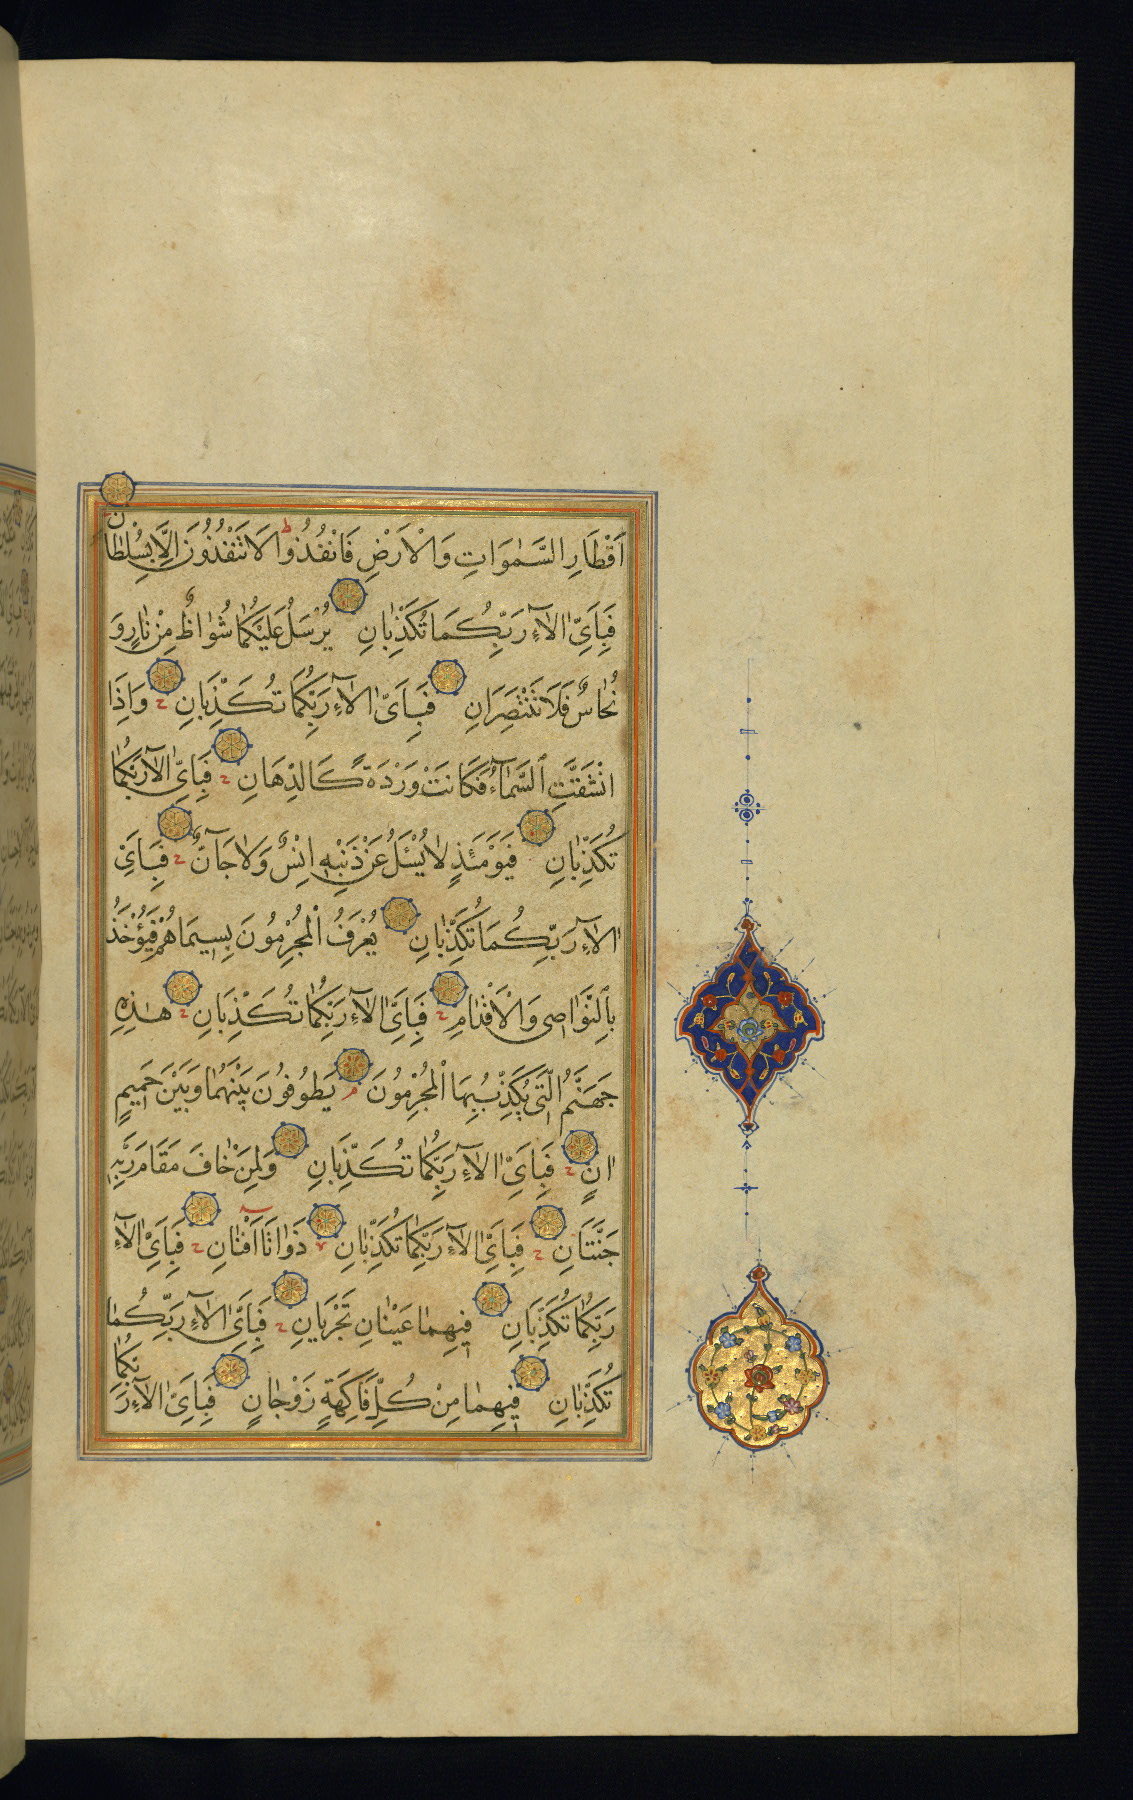 اَقْطَارِ السَّمٰوَاتِ وَالْاَرْضِ فَانْفُذُوا لَا تَنْفُذُونَ اِلَّا بِسُلْطَانٍ
فَبِاَیِّ اٰلَآءِ رَبِّكُمَا تُكَذِّبَانِ یُرْسَلُ عَلَیْكُمَا شُوَاظٌ مِنْ نَارٍ وَ
نُحَاسٌ فَلَا تَنْتَصِرَانِ فَبِاَیِّ اٰلَآءِ رَبِّكُمَا تُكَذِّبَانِ وَاِذَا
انْشَقَّتِ السَّمَآءُ فَكَانَتْ وَرْدَةً كَالدِّهَانِ فَبِاَیِّ اٰلَآءِ رَبِّكُمَا
تُكَذِّبَانِ فَیَوْمَئِذٍ لَا یُسْئَلُ عَنْ ذَنْبِهٖ اِنْسٌ وَلَا جَآنٌّ فَبِاَیِّ
اٰلَآءِ رَبِّكُمَا تُكَذِّبَانِ یُعْرَفُ الْمُجْرِمُونَ بِسِیمَاهُمْ فَیُؤْخَذُ
بِالنَّوَاصِی وَالْاَقْدَامِ فَبِاَیِّ اٰلَآءِ رَبِّكُمَا تُكَذِّبَانِ هٰذِهِ
جَهَنَّمُ الَّتِی یُكَذِّبُ بِهَا الْمُجْرِمُونَ یَطُوفُونَ بَیْنَهَا وَبَیْنَ حَمِیمٍ
اٰنٍ فَبِاَیِّ اٰلَآءِ رَبِّكُمَا تُكَذِّبَانِ وَلِمَنْ خَافَ مَقَامَ رَبِّهٖ
جَنَّتَانِ فَبِاَیِّ اٰلَآءِ رَبِّكُمَا تُكَذِّبَانِ ذَوَاتَآ اَفْنَانٍ فَبِاَیِّ اٰلَآءِ
رَبِّكُمَا تُكَذِّبَانِ فِیهِمَا عَیْنَانِ تَجْرِیَانِ فَبِاَیِّ اٰلَآءِ رَبِّكُمَا
تُكَذِّبَانِ فِیهِمَا مِنْ كُلِّ فَاكِهَةٍ زَوْجَانِ فَبِاَیِّ اٰلَآءِ رَبِّكُمَا